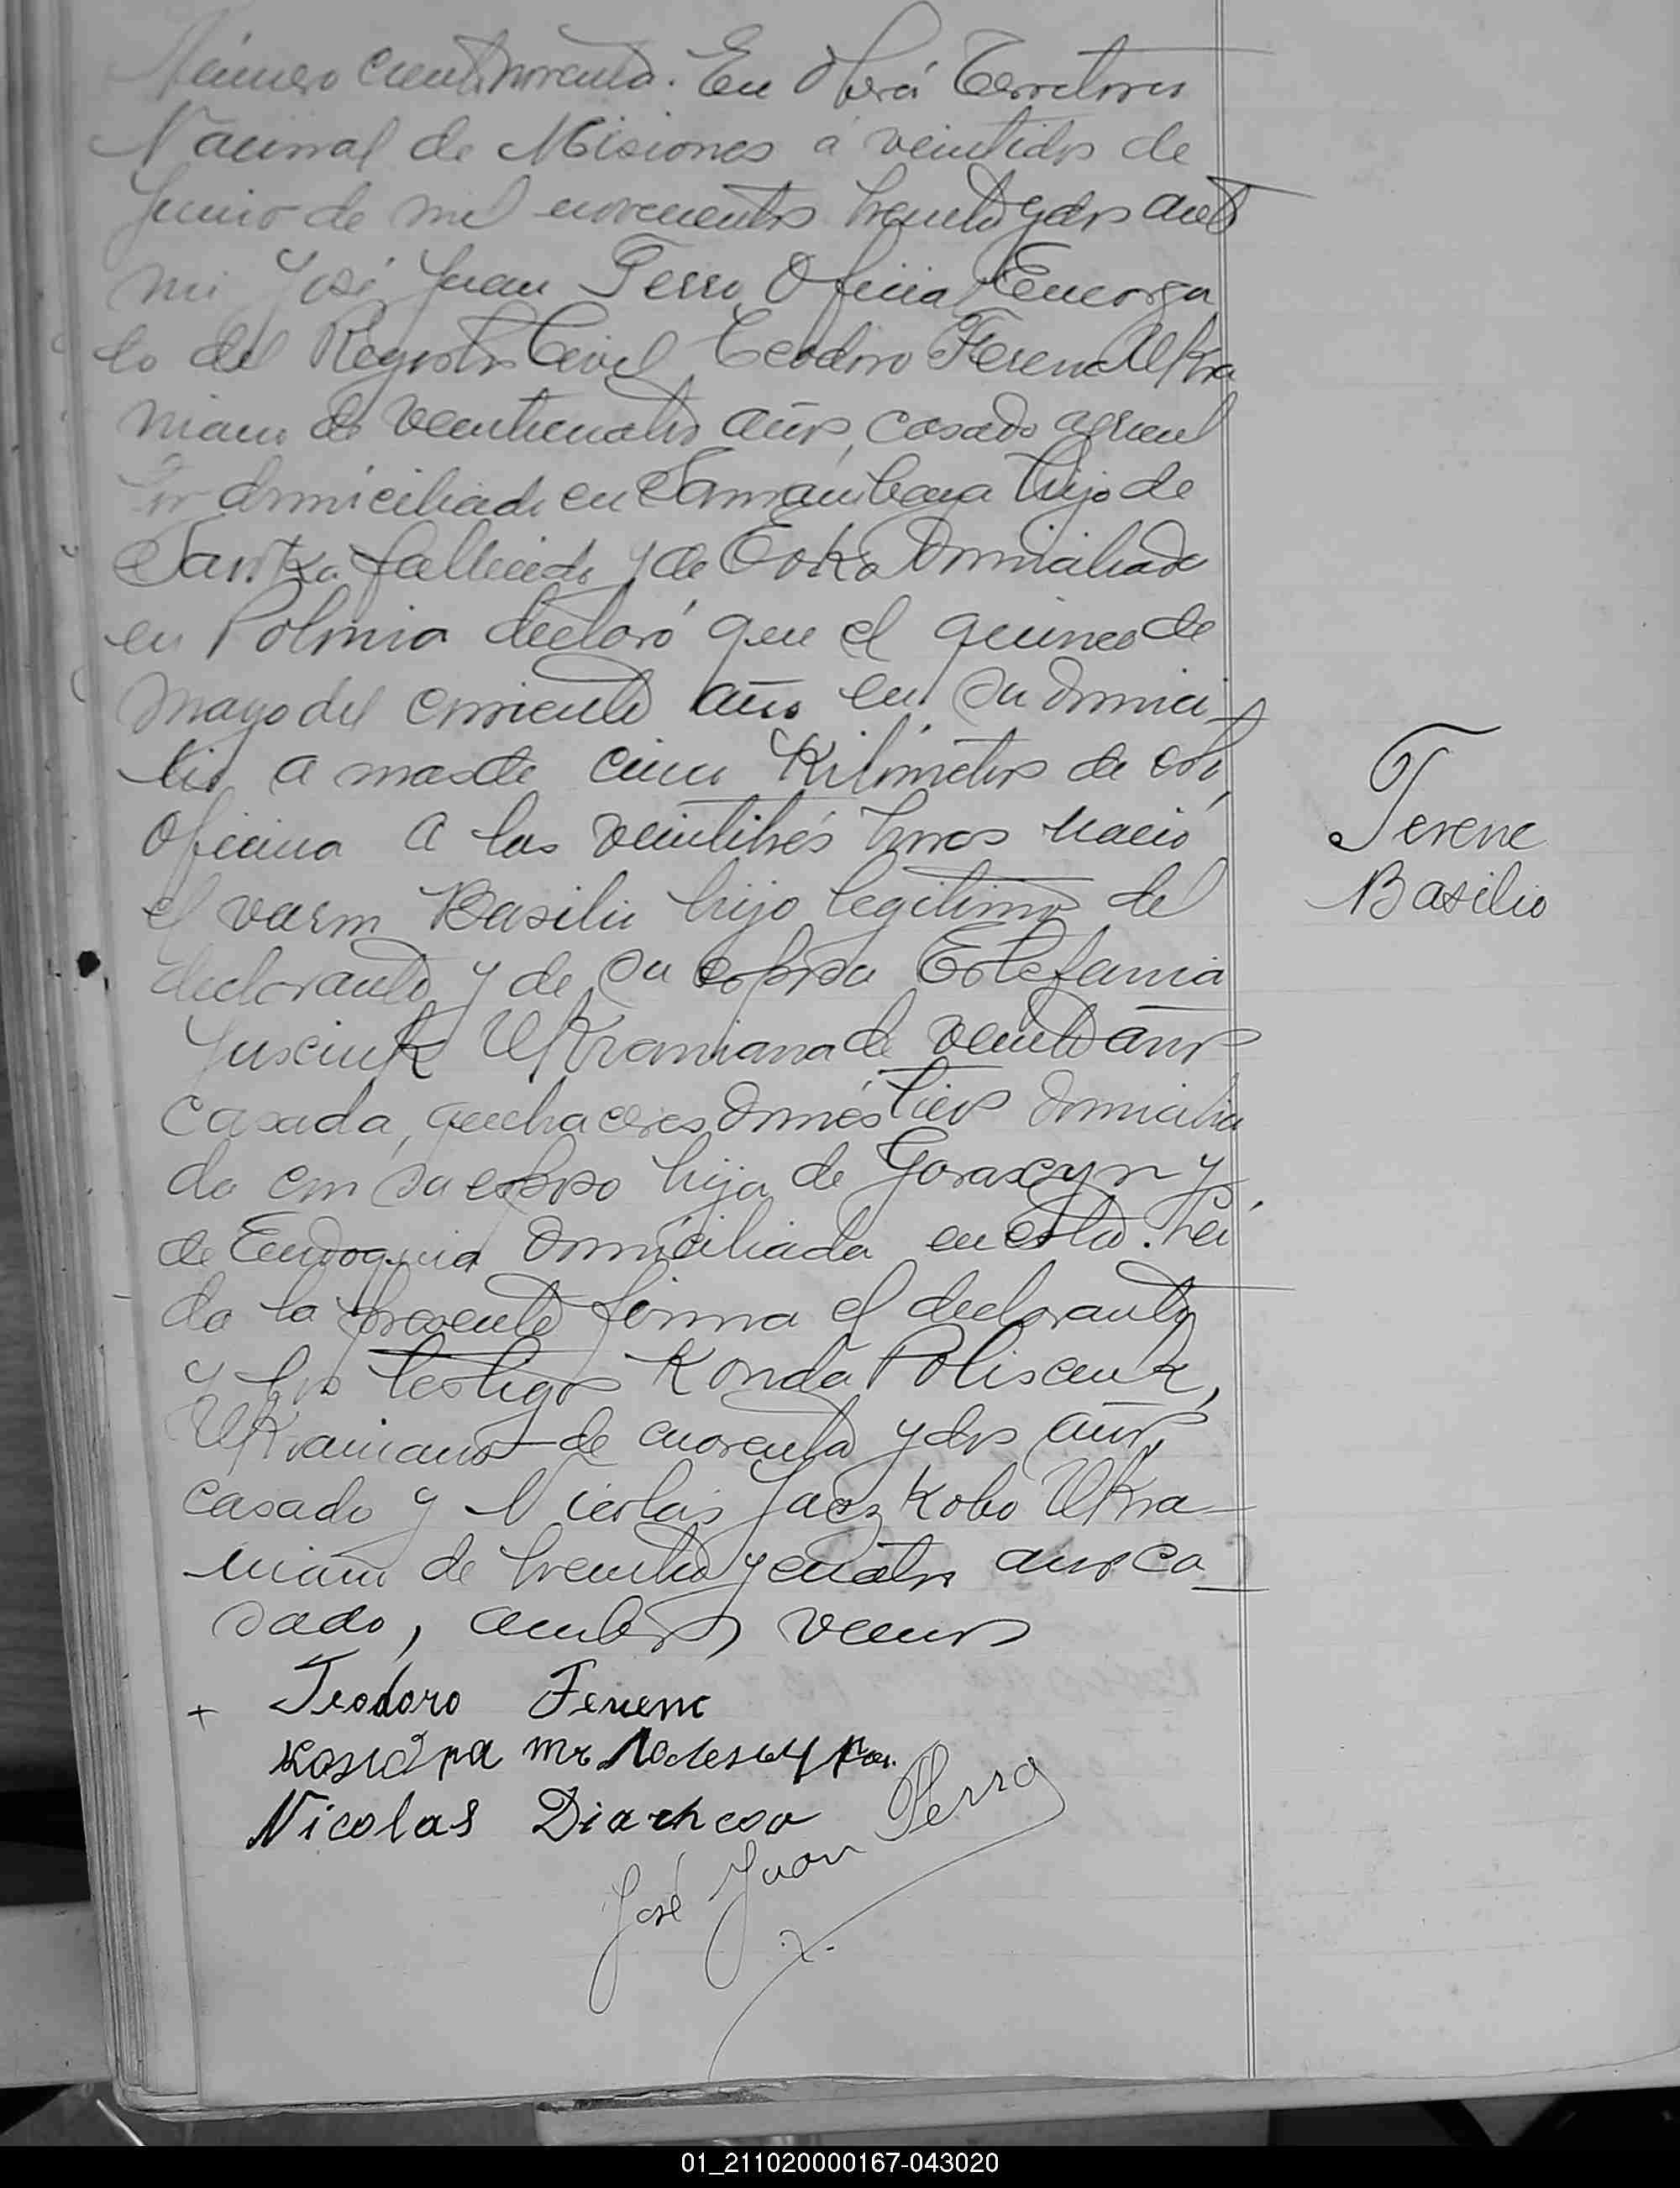 Número ciento noventa. En Oberá Territorio
Nacional de Misiones a veintidos de
Junio de mil novecientos treinta y dos ante
mi José Juan Perro Oficial Encarga
do del Registro Civil Teodoro Ferenc Ukra
niano de veinticuatro años, casado agricul
tor domiciliado en Samambaya hijo de
fallecido y de domiciliada
en Polonia declaró que el quince de
mayo del corriente año en su domici
lio a mas de cinco Kilómetros de esta
Oficina a las veintitrés horas nació
el varon Basilio hijo legítimo del
declarante y de su esposa Estefania
Jusciuk Ukraniana de veinte años
casada, quehaceres domésticos domicilia
da con su esposo hija de y
de Eudoquia domiciliada en esta. Leí
da la presente firma el declarante
y los testigos Konda Polisciuk,
Ukraniano de cuarenta y dos años,
casado y Nicolás Ukra
niano de treinta y cuatro años ca
sado, ambos vecinos
Ferenc
Basilio
+ Teodoro Ferenc
Nicolas
José Juan Perro
01_211020000167-043020